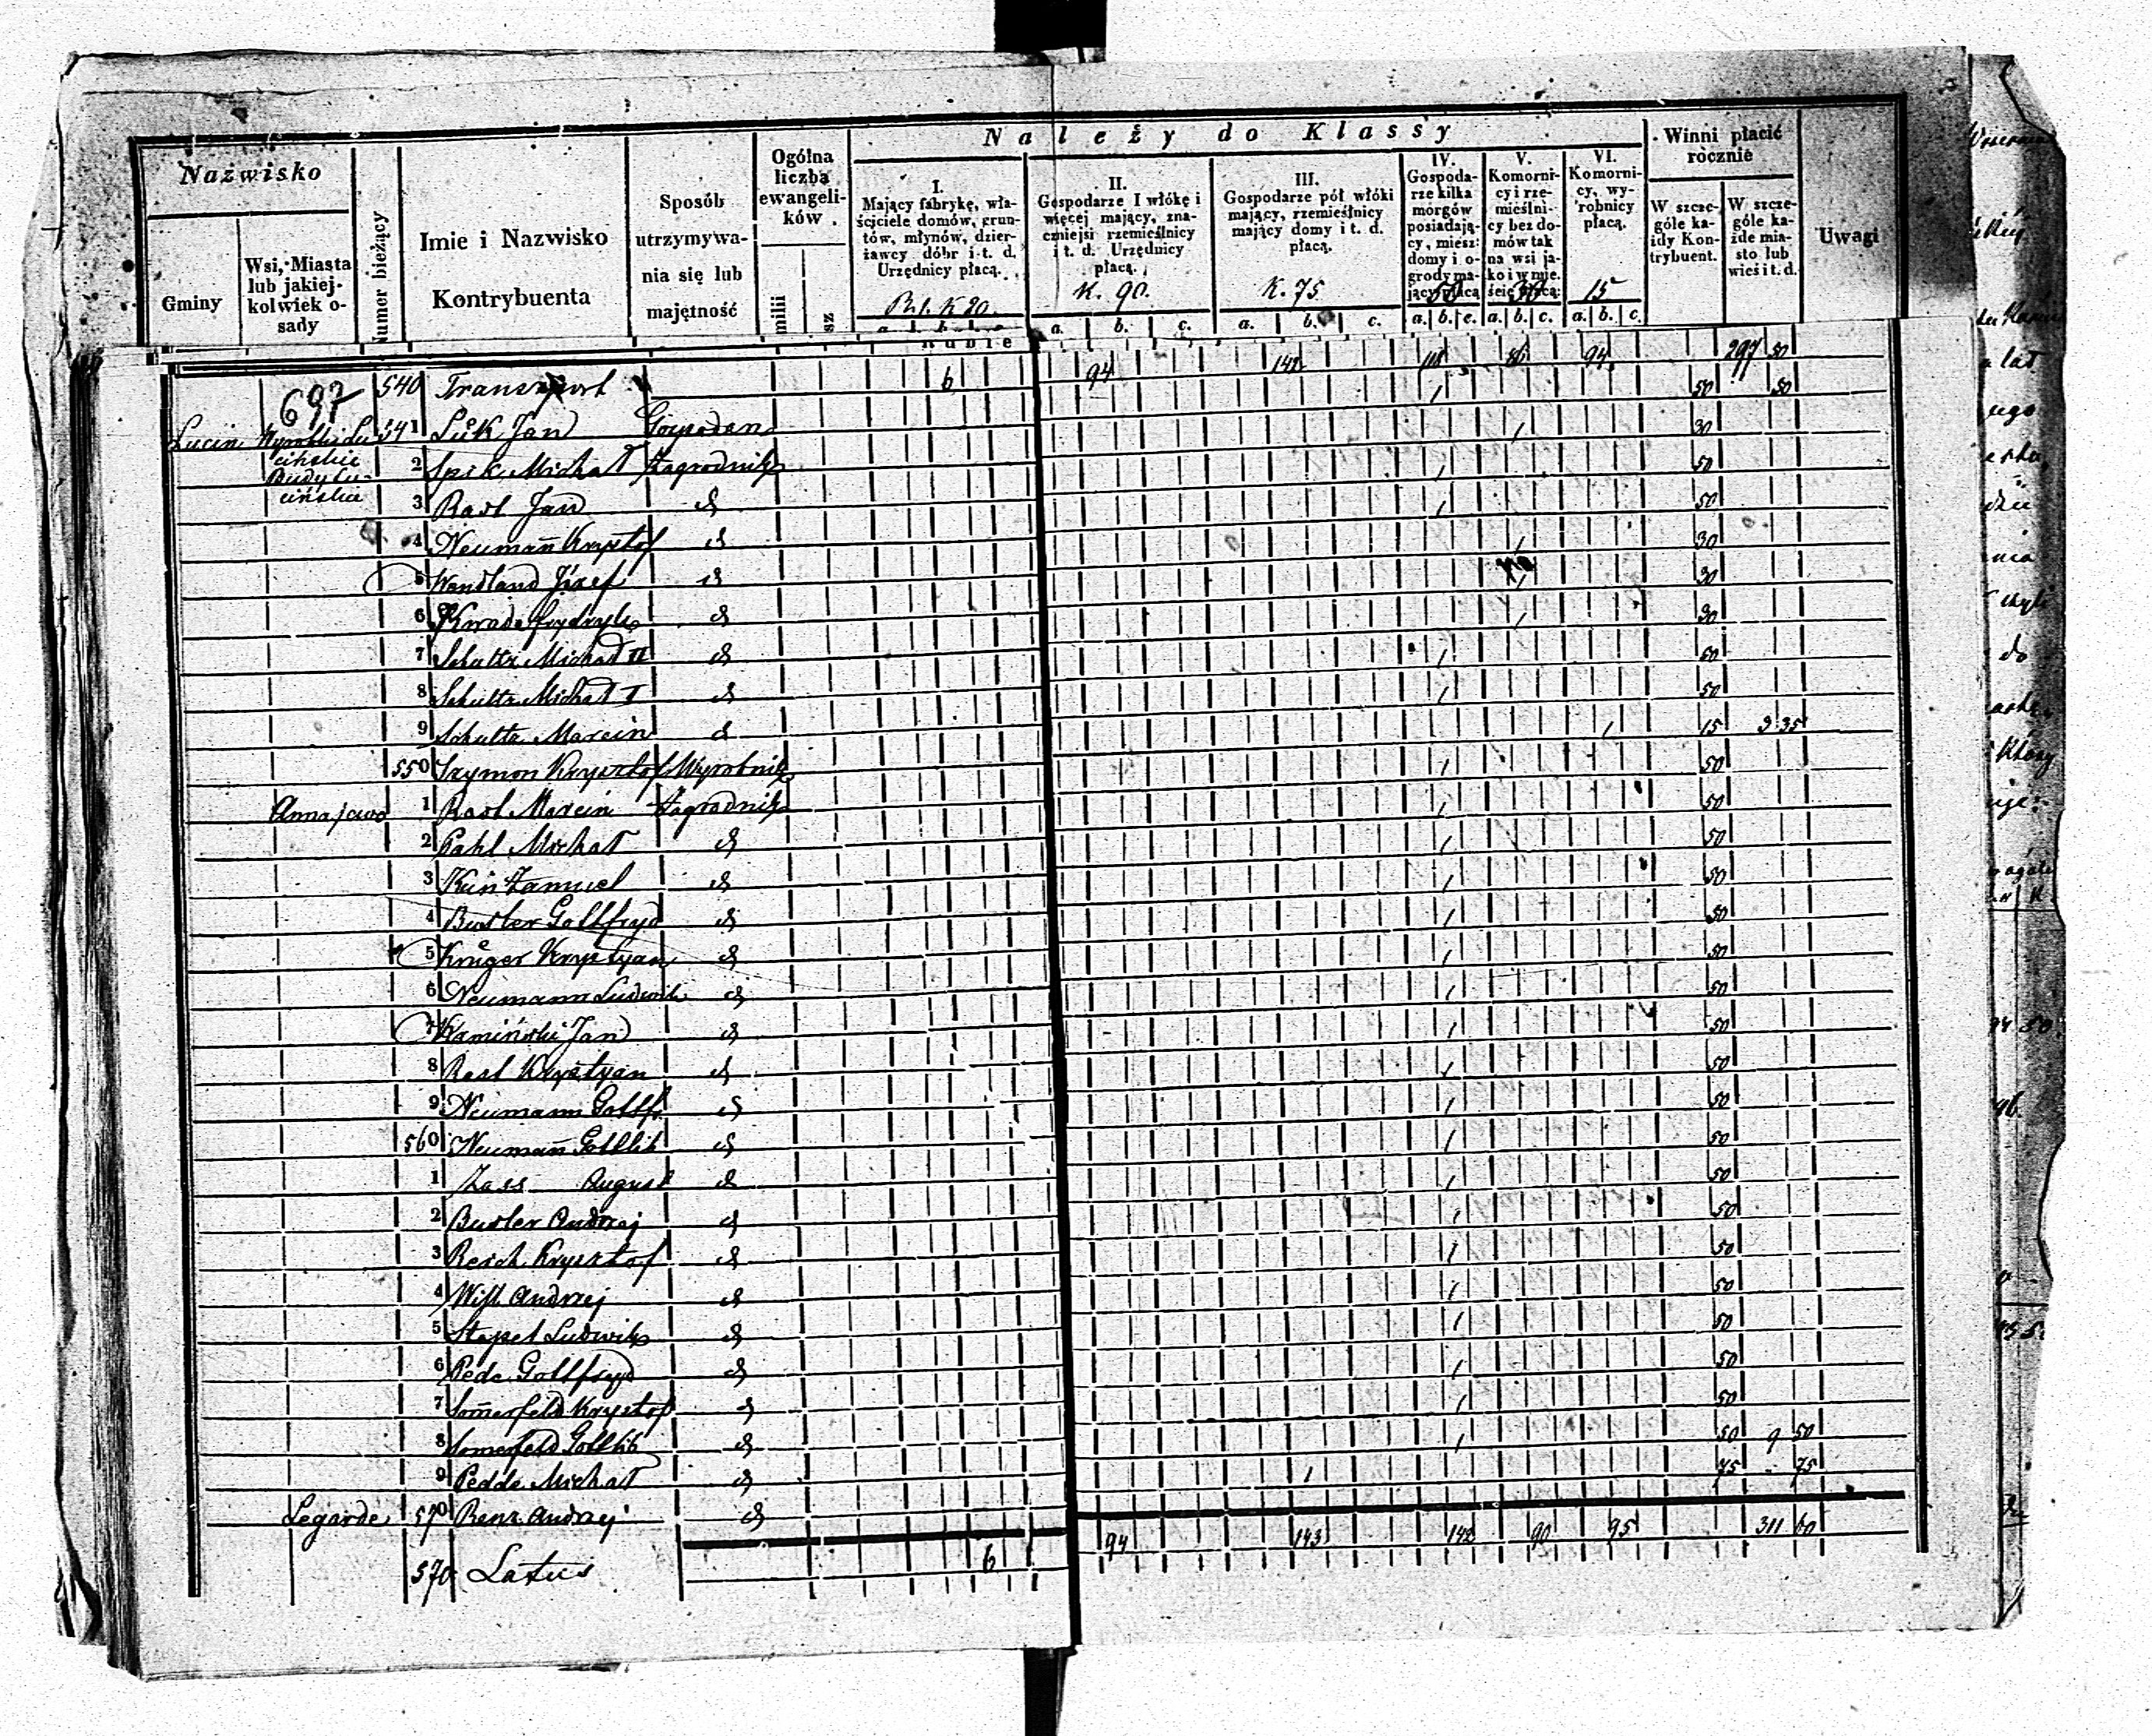 Należy do Klassy
Nazwisko
Gminy
Wsi, Miasta
lub jakiej-
kolwiek o-
sady
Numer bieżący
Imie i Nazwisko
Kontrybuenta
Sposób
utrzymywa-
nia się lub
majętność
Ogólna
liczba
ewangeli-
ków
I.
Mający fabrykę, wła-
ściciele domów, grun-
tów, młynów, dzier-
żawcy dóbr i t. d.
Urzędnicy płacą.
II.
Gospodarze I włókę i
więcej mający, zna-
czniejsi rzemieślnicy
i t. d. Urzędnicy
płacą.
K. 90.
III.
Gospodarze pół włóki
mający, rzemieślnicy
mający domy i t. d.
płacą.
K. 75
IV.
Gospoda-
rze kilka
morgów
posiadają-
cy, miesz:
domy i o-
grody ma-
jący płacą
50
V.
Komorni-
cy i rze-
mieślni-
cy bez do-
mów tak
na wsi ja-
ko i w mie-
ście płacą:
30
VI.
Komorni-
cy, wy-
robnicy
płacą.
15
Winni płacić
rocznie
W szcze-
góle ka-
żdy Kon-
trybuent.
W szcze-
góle ka-
żde mia-
sto lub
wieś i t. d.
Uwagi
a. b. c. a. b. c. a. b. c. a. b. c. a. b. c.
697
540 Transport 6 94 142 94 297 50
Lucin 541 Lük Jan Gospodarz 1 50 50
2 Spik Michał Zagrodnik 1 30
Budy Lu-
cińskie
3 Rast Jan d 1 50
4 Neumañ Krysztof d 1 50
5 Wendland Józef d 1 30
6 Frydryk d 1 30
7 Schultz Michał II d 1 30
8 Schultz Michał I d 1 50
9 Schultz Marcin d 1 50
550 Szymon Krysztof Wyrobnik 1 15 3 35
Annajewo 1 Rast Marcin Zagrodnik 1 50
2 Pahl Michał d 1 50
3 Samuel d 1 50
4 Busler Gottfryd d 1 50
5 Krüger Krystyan d 1 50
6 Neumann Ludwik d 1 50
7 Kamiński Jan d 1 50
8 Rast Krystyan d 1 50
9 Neumann Gottfr. d 1 50
560 Neumañ Gottlib d 1 50
1 Zass August d 1 50
2 Busler Andrzej d 1 50
3 Resch Krysztof d 1 50
4 Andrzej d 1 50
5 Stapel Ludwik d 1 50
6 Pede Gottfryd d 1 50
7 Somerfeld Krysztof d 1 50
8 Somerfeld Gottlib d 1 50
9 Pedde Michał d 1 50 9 50
Legarde 570 Renz Andrzej d 1 75 75
570 Latus 6 94 143 142 90 95 311 60